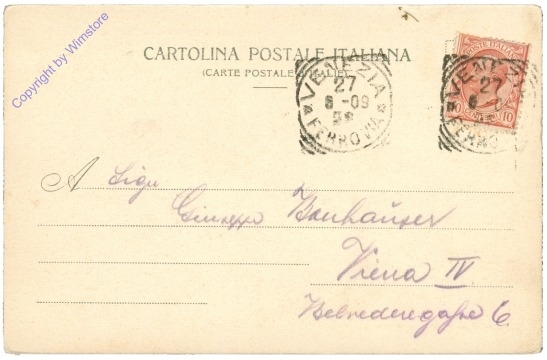 Copyright by Wimstore
CARTOLINA POSTALE ITALIANA
(CARTE POSTALE ITALIE)
VENEZIA
27
8-09
FERROVIA
VENEZIA
27
8
FERRO
POSTE ITALIANE
10
A Sigr
Giuseppe Banhäuser
Viena IV
Belvederegasse 6.